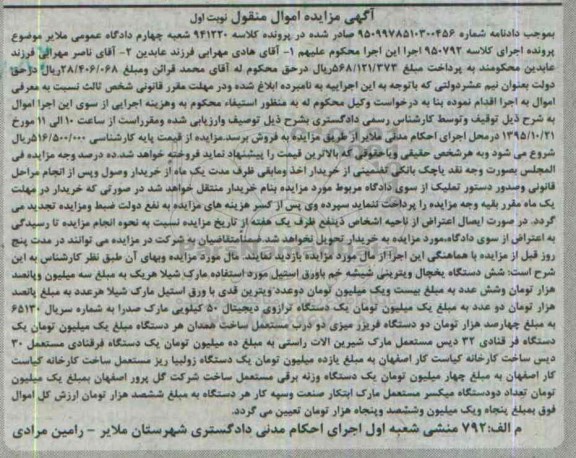 آگهی مزایده اموال منقول نوبت اول
بموجب دادنامه شماره ۹۵۰۹۹۷۸۵۱۰۳۰۰۴۵۶ صادر شده در پرونده کلاسه ۹۴۱۲۲۰ شعبه چهارم دادگاه عمومی ملایر موضوع
پرونده اجرای کلاسه ۹۵۰۷۹۲ اجرا این اجرا محکوم علیهم ۱- آقای هادی مهرابی فرزند عابدین ۲- آقای ناصر مهرابی فرزند
عابدین محکومند به پرداخت مبلغ ۵۶۸/۱۲۱/۳۷۳ریال درحق محکوم له آقای محمد قرائن ومبلغ ۲۸/۴۰۶/۰۶۸ریال درحق
دولت بعنوان نیم عشردولتی که باتوجه به این اجراییه به نامبرده ابلاغ شده ودر مهلت مقرر قانونی شخص ثالث نسبت به معرفی
اموال به اجرا اقدام نموده بنا به درخواست وکیل محکوم له به منظور استیفاء محکوم به وهزینه اجرایی از سوی این اجرا اموال
به شرح ذیل توقیف وتوسط کارشناس رسمی دادگستری بشرح ذیل توصیف وارزیابی شده ومقرراست از ساعت ۱۰ الی ۱۱ مورخ
۱۳۹۵/۱۰/۲۱ درمحل اجرای احکام مدنی ملایر از طریق مزایده به فروش برسد.مزایده از قیمت پایه کارشناسی ۵۱۶/۵۰۰/۰۰۰ریال
شروع می شود وبه هرشخص حقیقی وباحقوقی که بالاترین قیمت را پیشنهاد نماید فروخته خواهد شد.ده درصد وجه مزایده فی
المجلس بصورت وجه نقد یاچک بانکی تضمینی از خریدار اخذ ومابقی ظرف مدت یک ماه از خریدار وصول وپس از انجام مراحل
قانونی وصدور دستور تملیک از سوی دادگاه مربوط مورد مزایده بنام خریدار منتقل خواهد شد در صورتی که خریدار در مهلت
یک ماه مقرر بقیه وجه مزایده را پرداخت ننماید سپرده وی پس از کسر هزینه های مزایده به نفع دولت ضبط ومزایده تجدید می
گردد. در صورت ایصال اعتراض از ناحیه اشخاص ذینفع ظرف یک هفته از تاریخ مزایده نسبت به نحوه انجام مزایده تا رسیدگی
به اعتراض از سوی دادگاه،مورد مزایده به خریدار تحویل نخواهد شد ضمناًمتقاضیان به شرکت در مزایده می توانند در مدت پنج
روز قبل از مزایده با هماهنگی این اجرا از مال مورد مزایده بازدید نمایند. مال مورد مزایده وبهای آن طبق نظر کارشناس به این
شرح است: شش دستگاه یخچال ویترینی شیشه خم باورق استیل مورد استفاده مارک شیلا هریک به مبلغ سه میلیون وپانصد
هزار تومان وشش عدد به مبلغ بیست ویک میلیون تومان دوعدد ویترین قدی با ورق استیل مارک شیلا هرعدد به مبلغ پانصد
هزار تومان دو عدد به مبلغ یک میلیون تومان یک دستگاه ترازوی دیجیتال ۵۰ کیلویی مارک صدرا به شماره سریال ۶۵۱۳۰
به مبلغ چهارصد هزار تومان دو دستگاه فریزر میزی دو درب مستعمل ساخت همدان هر دستگاه مبلغ یک میلیون تومان یک
دستگاه فر قنادی ۳۲ دیس مستعمل مارک شیرین الات راستی به مبلغ ده میلیون تومان یک دستگاه فرقنادی مستعمل ۳۰
دیس ساخت کارخانه کیاست کار اصفهان به مبلغ یازده میلیون تومان یک دستگاه زولبیا ریز مستعمل ساخت کارخانه کیاست
کار اصفهان به مبلغ چهار میلیون تومان یک دستگاه وزنه برقی مستعمل ساخت شرکت گل پرور اصفهان بمبلغ یک میلیون
تومان تعداد دودستگاه میکسر مستعمل مارک ابتکار صنعت وسپه کار هر دستگاه به مبلغ ششصد هزار تومان ارزش کل اموال
فوق بمبلغ پنجاه ویک میلیون وششصد وپنجاه هزار تومان تعیین می گردد.
م الف:۷۹۲ منشی شعبه اول اجرای احکام مدنی دادگستری شهرستان ملایر – رامین مرادی